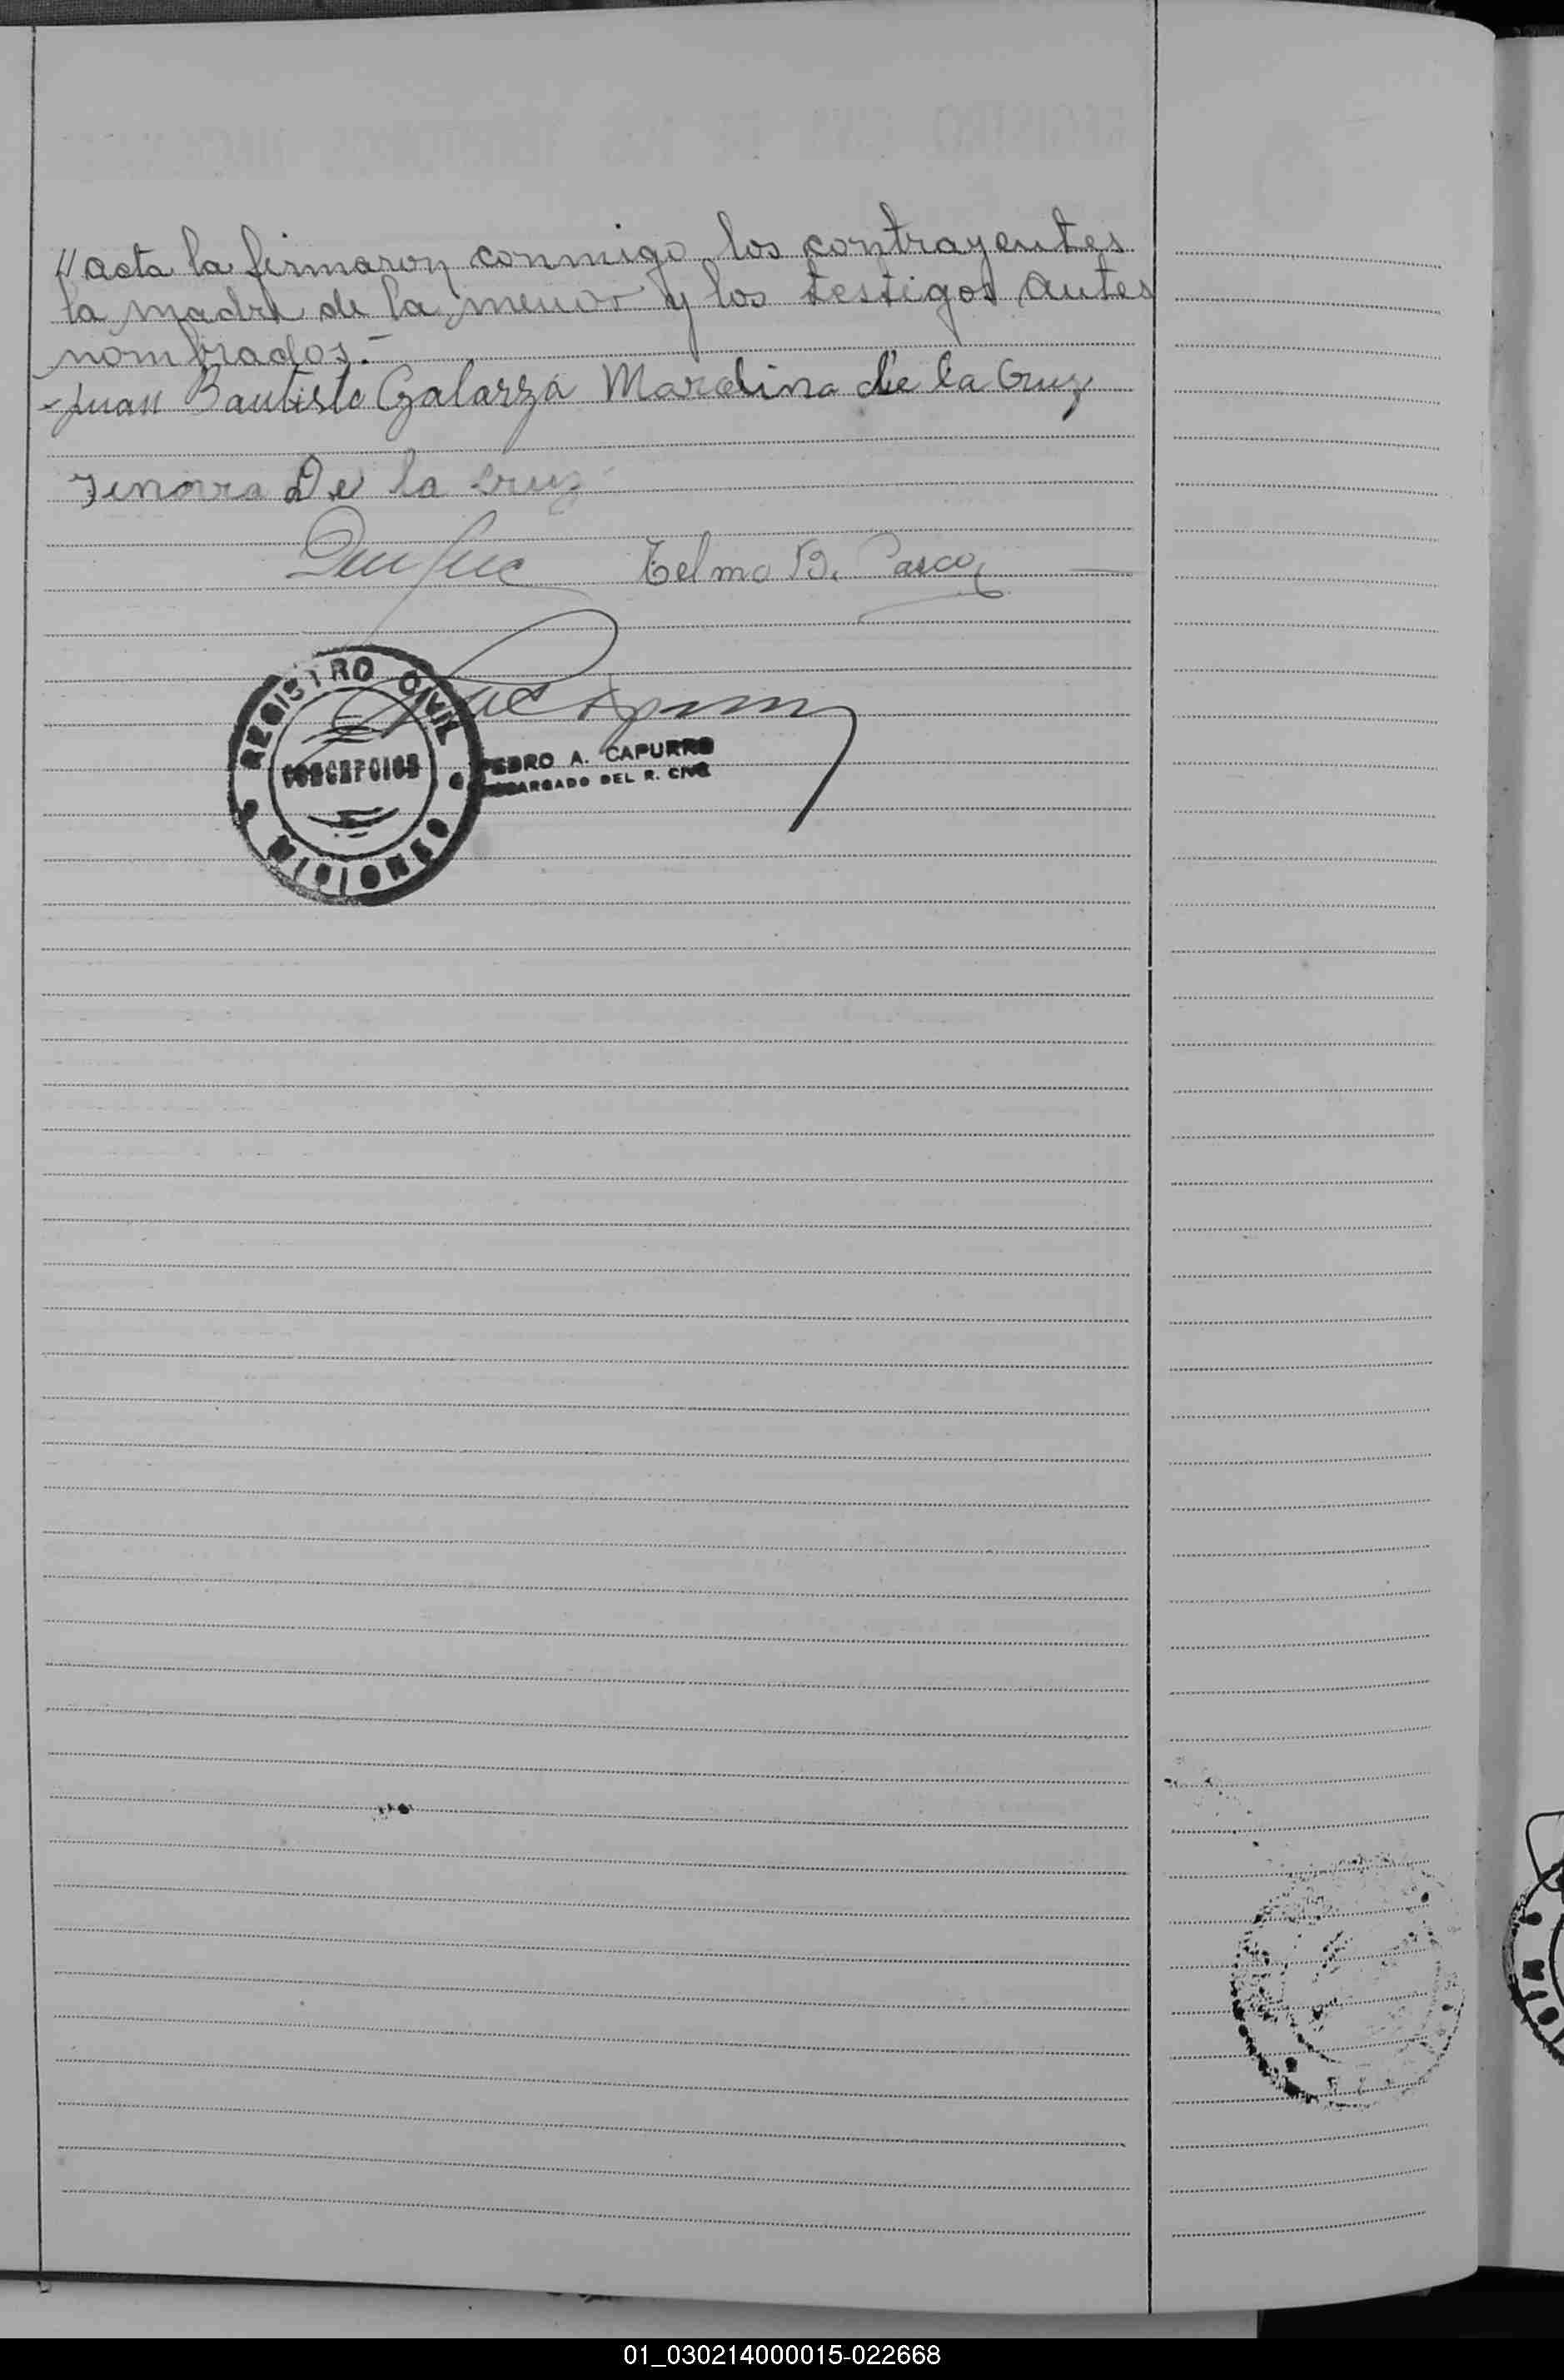 // acta la firmaron conmigo los contrayentes
la madre de la menor y los testigos antes
nombrados.-
Juan Bautista Galarza Marcelina de la Cruz
Jenovra De la Cruz
Telmo B. Pasco
REGISTRO CIVIL
CONCEPCION
MISIONES
PEDRO A. CAPURRO
ENCARGADO DEL R. CIVIL
01_030214000015-022668